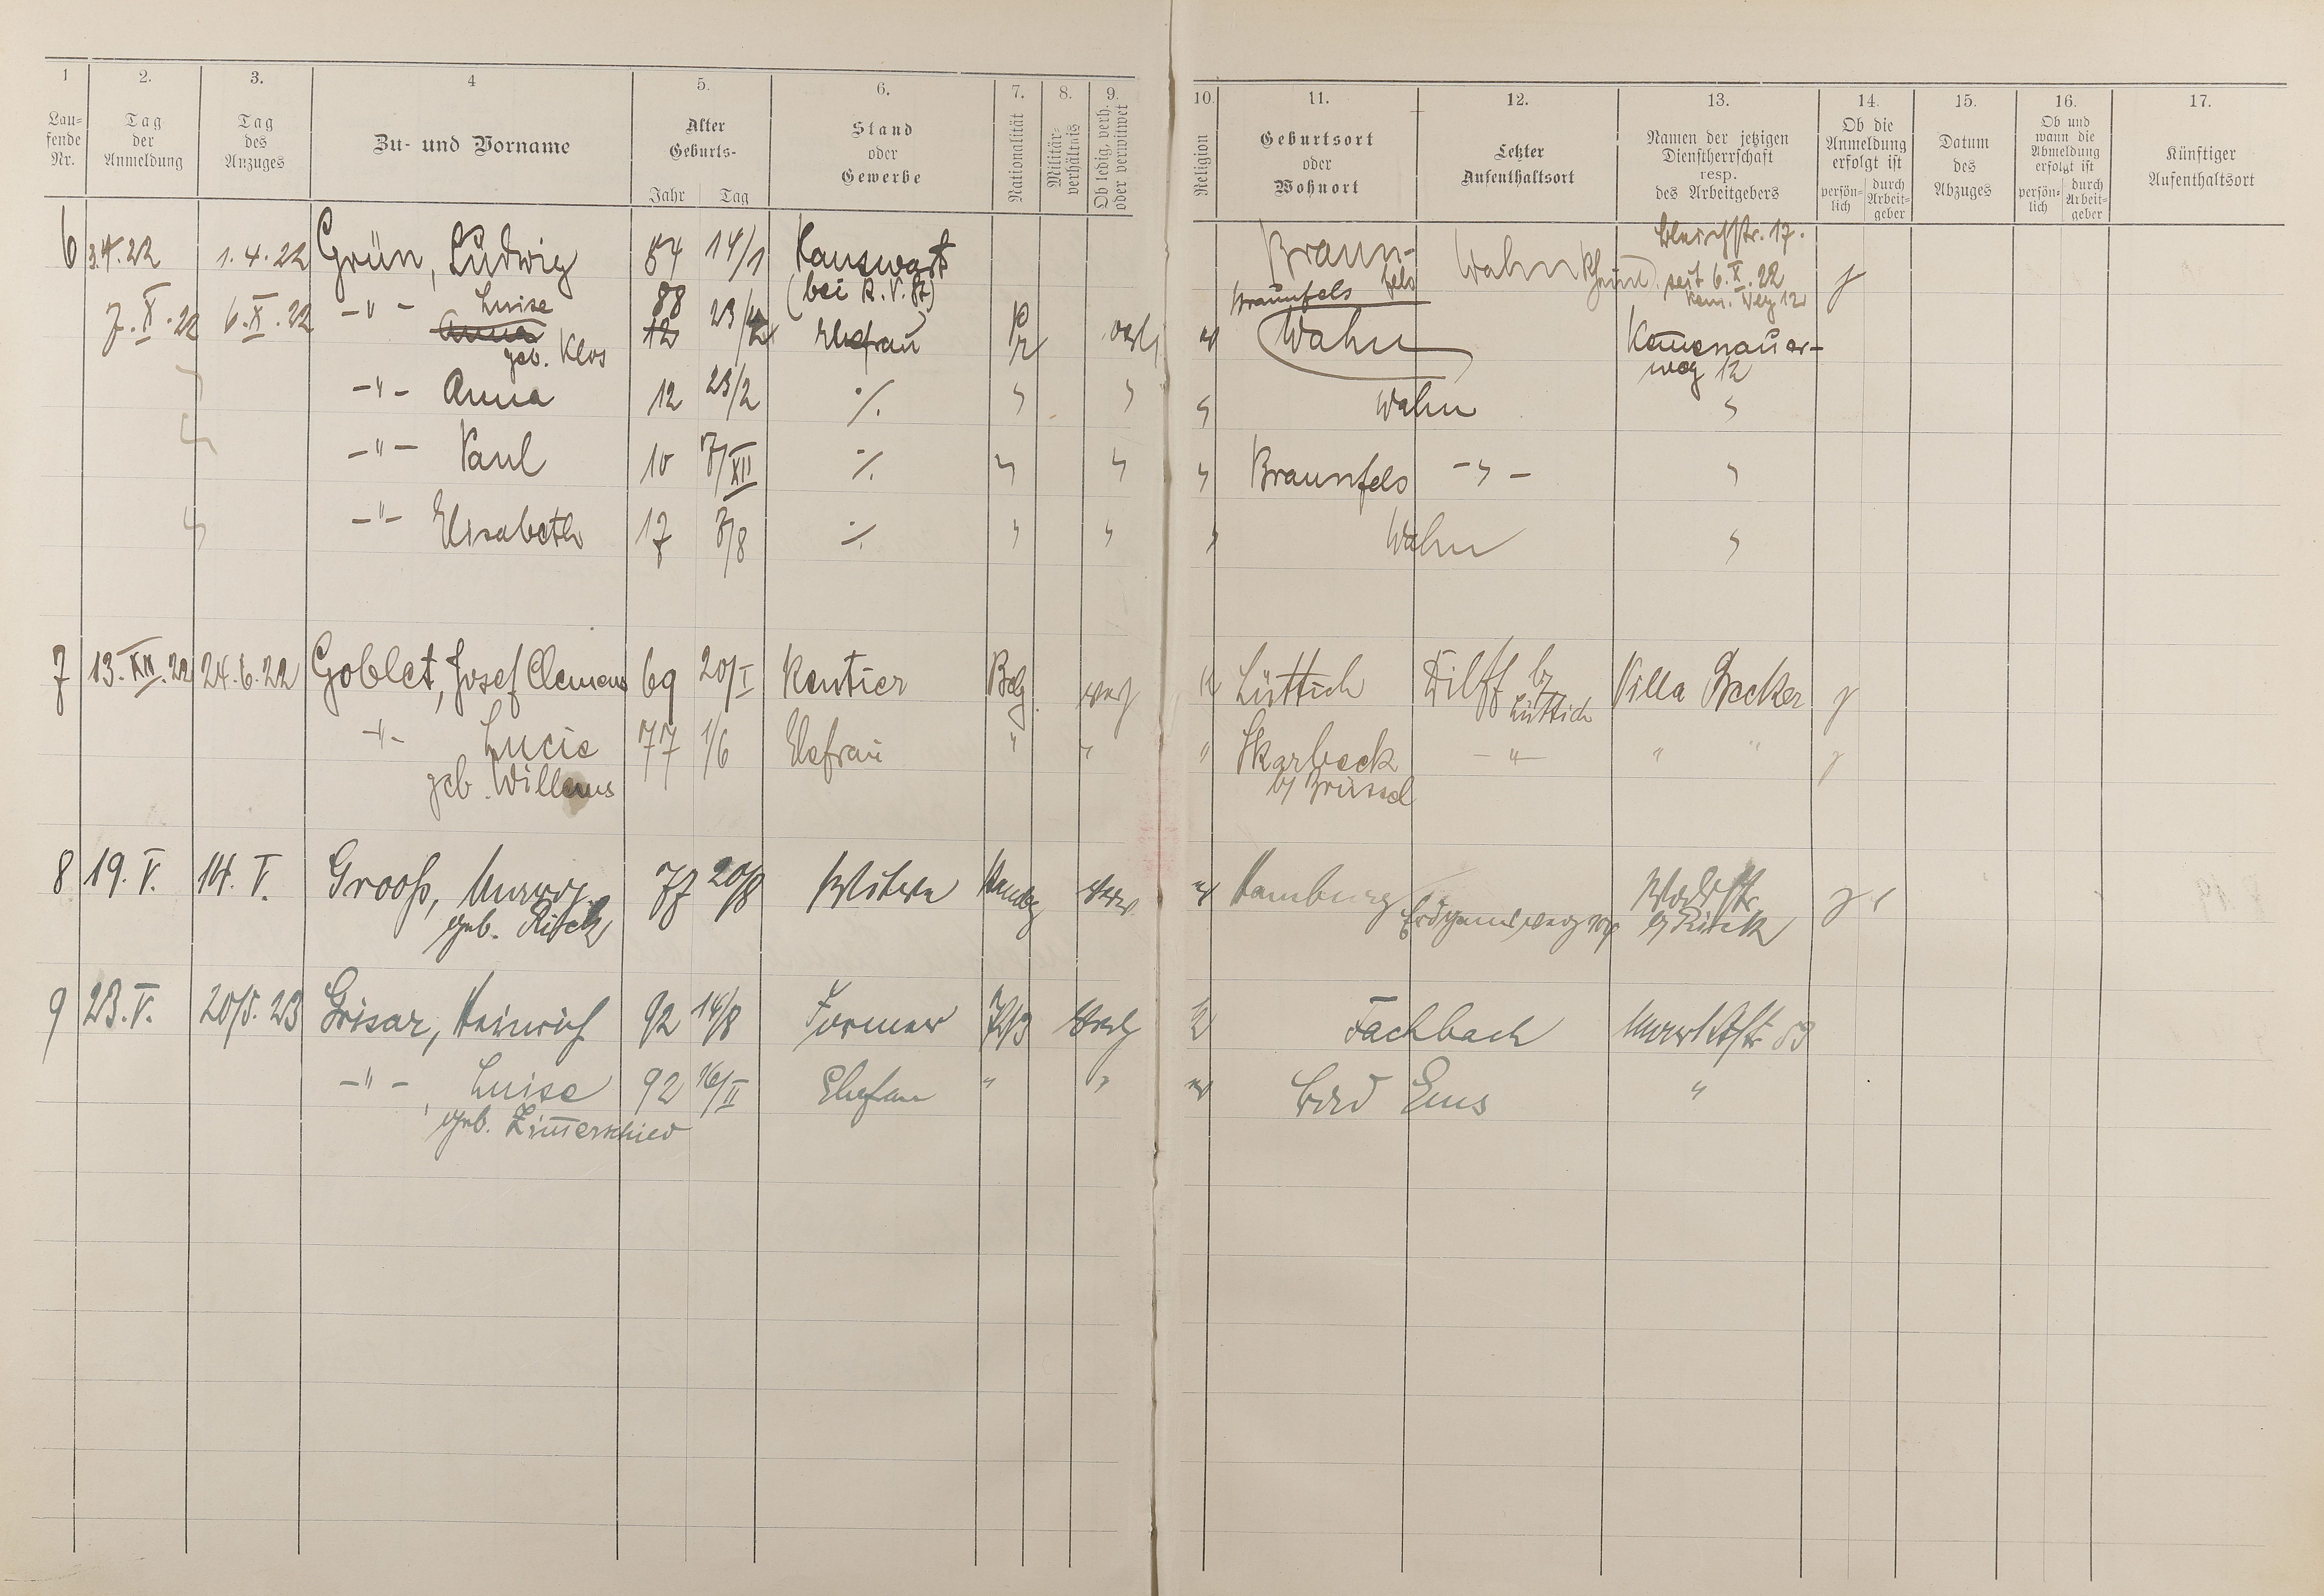 1 2. 3. 4 5. 6. 7. 8. 9. 10. 11. 12. 13. 14. 15. 16. 17.
Lau-
fende
Nr.
Tag
der
Anmeldung
Tag
des
Anzuges
Zu- und Vorname
Alter
Geburts-
Jahr Tag
Stand
oder
Gewerbe
Nationalität
Militär-
verhältnis
Ob ledig, verh.
oder verwitwet
Religion
Geburtsort
oder
Wohnort
Letzter
Aufenthaltsort
Namen der jetzigen
Dienstherrschaft
resp.
des Arbeitgebers
Ob die
Anmeldung
erfolgt ist
persön-
lich
durch
Arbeit-
geber
Datum
des
Abzuges
Ob und
wann die
Abmeldung
erfolgt ist
persön-
lich
durch
Arbeit-
geber
Künftiger
Aufenthaltsort
6 3.4.22 1.4.22 Grün, Ludwig 84 14/1 Hauswart Braun- Wahn Bleichstr. 17.
(bei R.V.) fels seit 6.X.22
Kem. Weg 12
7.X.22 6.X.22 -"- Luise 88 23/4 Ehefrau Pr verh Braunfels
Anna 12 Wahn Kemenauer-
geb. Klos weg 12
-"- Anna 12 23/2 ·/. " " " Wahn "
-"- Paul 10 7/XII ·/. " " " Braunfels -"- "
-"- Elisabeth 17 3/8 ·/. " " " Wahn "
7 13.XII.22 24.6.22 Goblet, Josef Clemens 69 20/I Rentier Belg. verh K Lüttich Tilff b/ Villa Becker
Lüttich
-"- Lucie 77 1/6 Ehefrau " " " Skarbeck -"- " "
geb. Willems b/ Brüssel
8 19.V. 14.V. Grooß, 77 20/8 Witwe Hambg verw. ev Hamburg
geb.
9 23.V. 20/5.23 Grisar, Heinrich 92 14/8 Former verh K Fachbach Marktstr 59
-"- Luise 92 16/II Ehefrau " " ev Bad Ems "
geb. Zim̅erschied